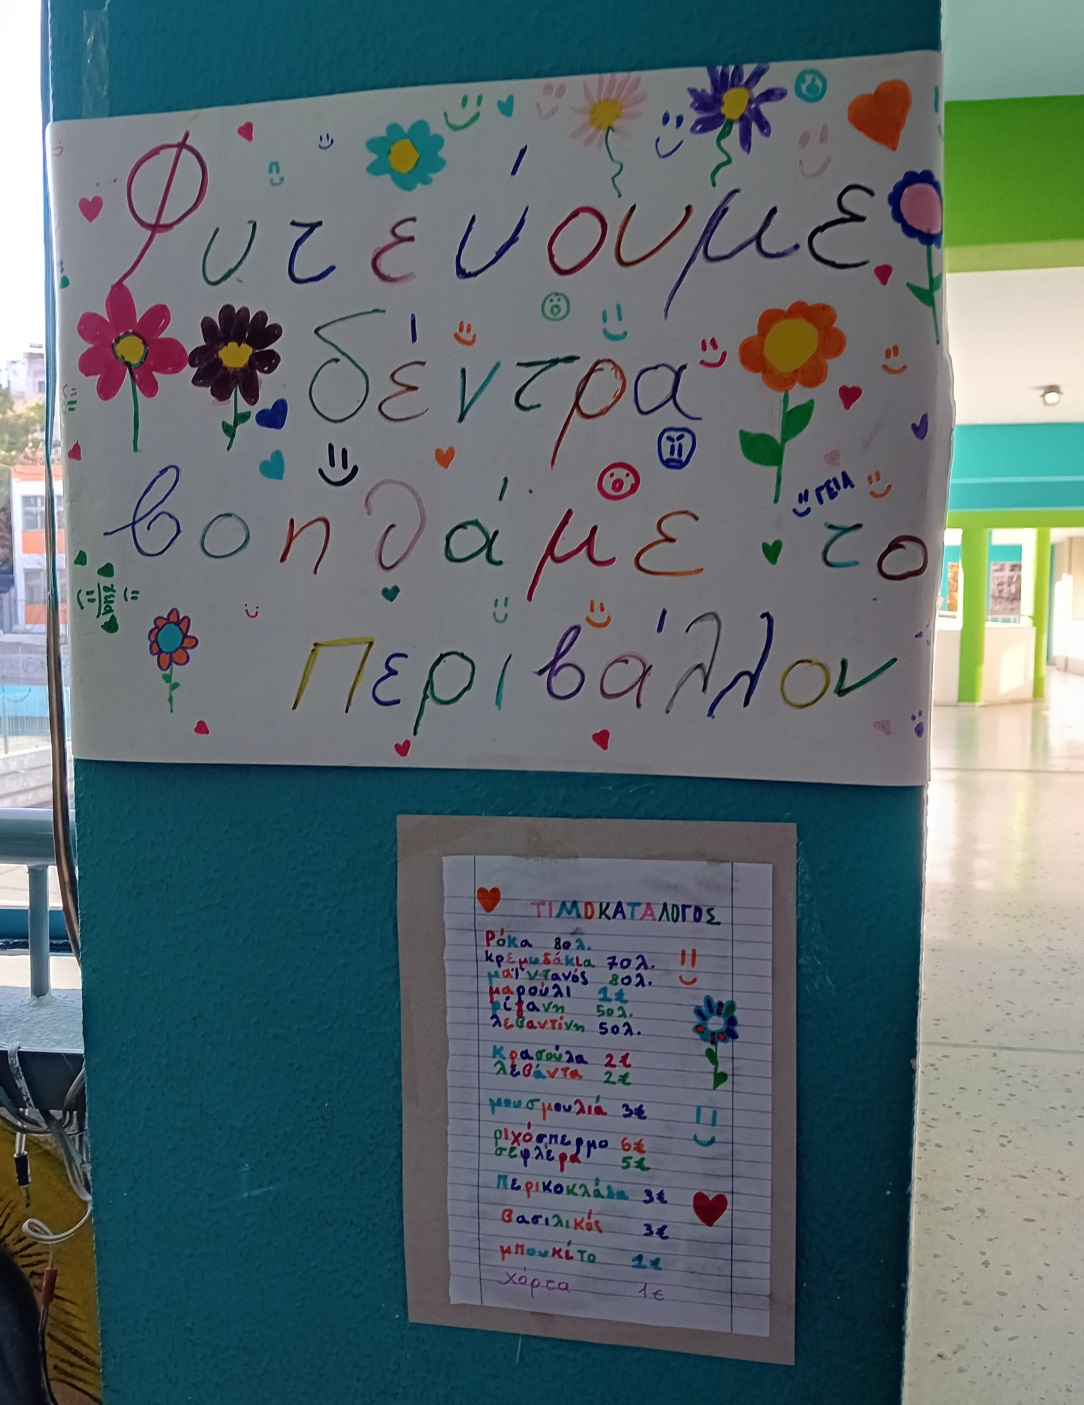 Φυτεύουμε
δέντρα
βοηθάμε το
ΓΕΙΑ
Περιβάλλον
ΤΙΜΟΚΑΤΑΛΟΓΟΣ
Ρόκα 80λ.
κρεμυδάκια 70λ.
μαϊντανός 80λ.
μαρούλι 1€
ρίγανη 50λ.
λεβαντίνη 50λ.
Κρασούλα 2€
λεβάντα 2€
μουσμουλιά 3€
ριχόσπερμο 6€
σεφλέρα 5€
Περικοκλάδα 3€
Βασιλικός 3€
μπουκέτο 1€
χόρτα 1€